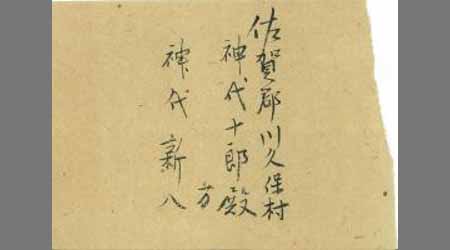 佐賀郡川久保村
神代十郎殿方
神代新八